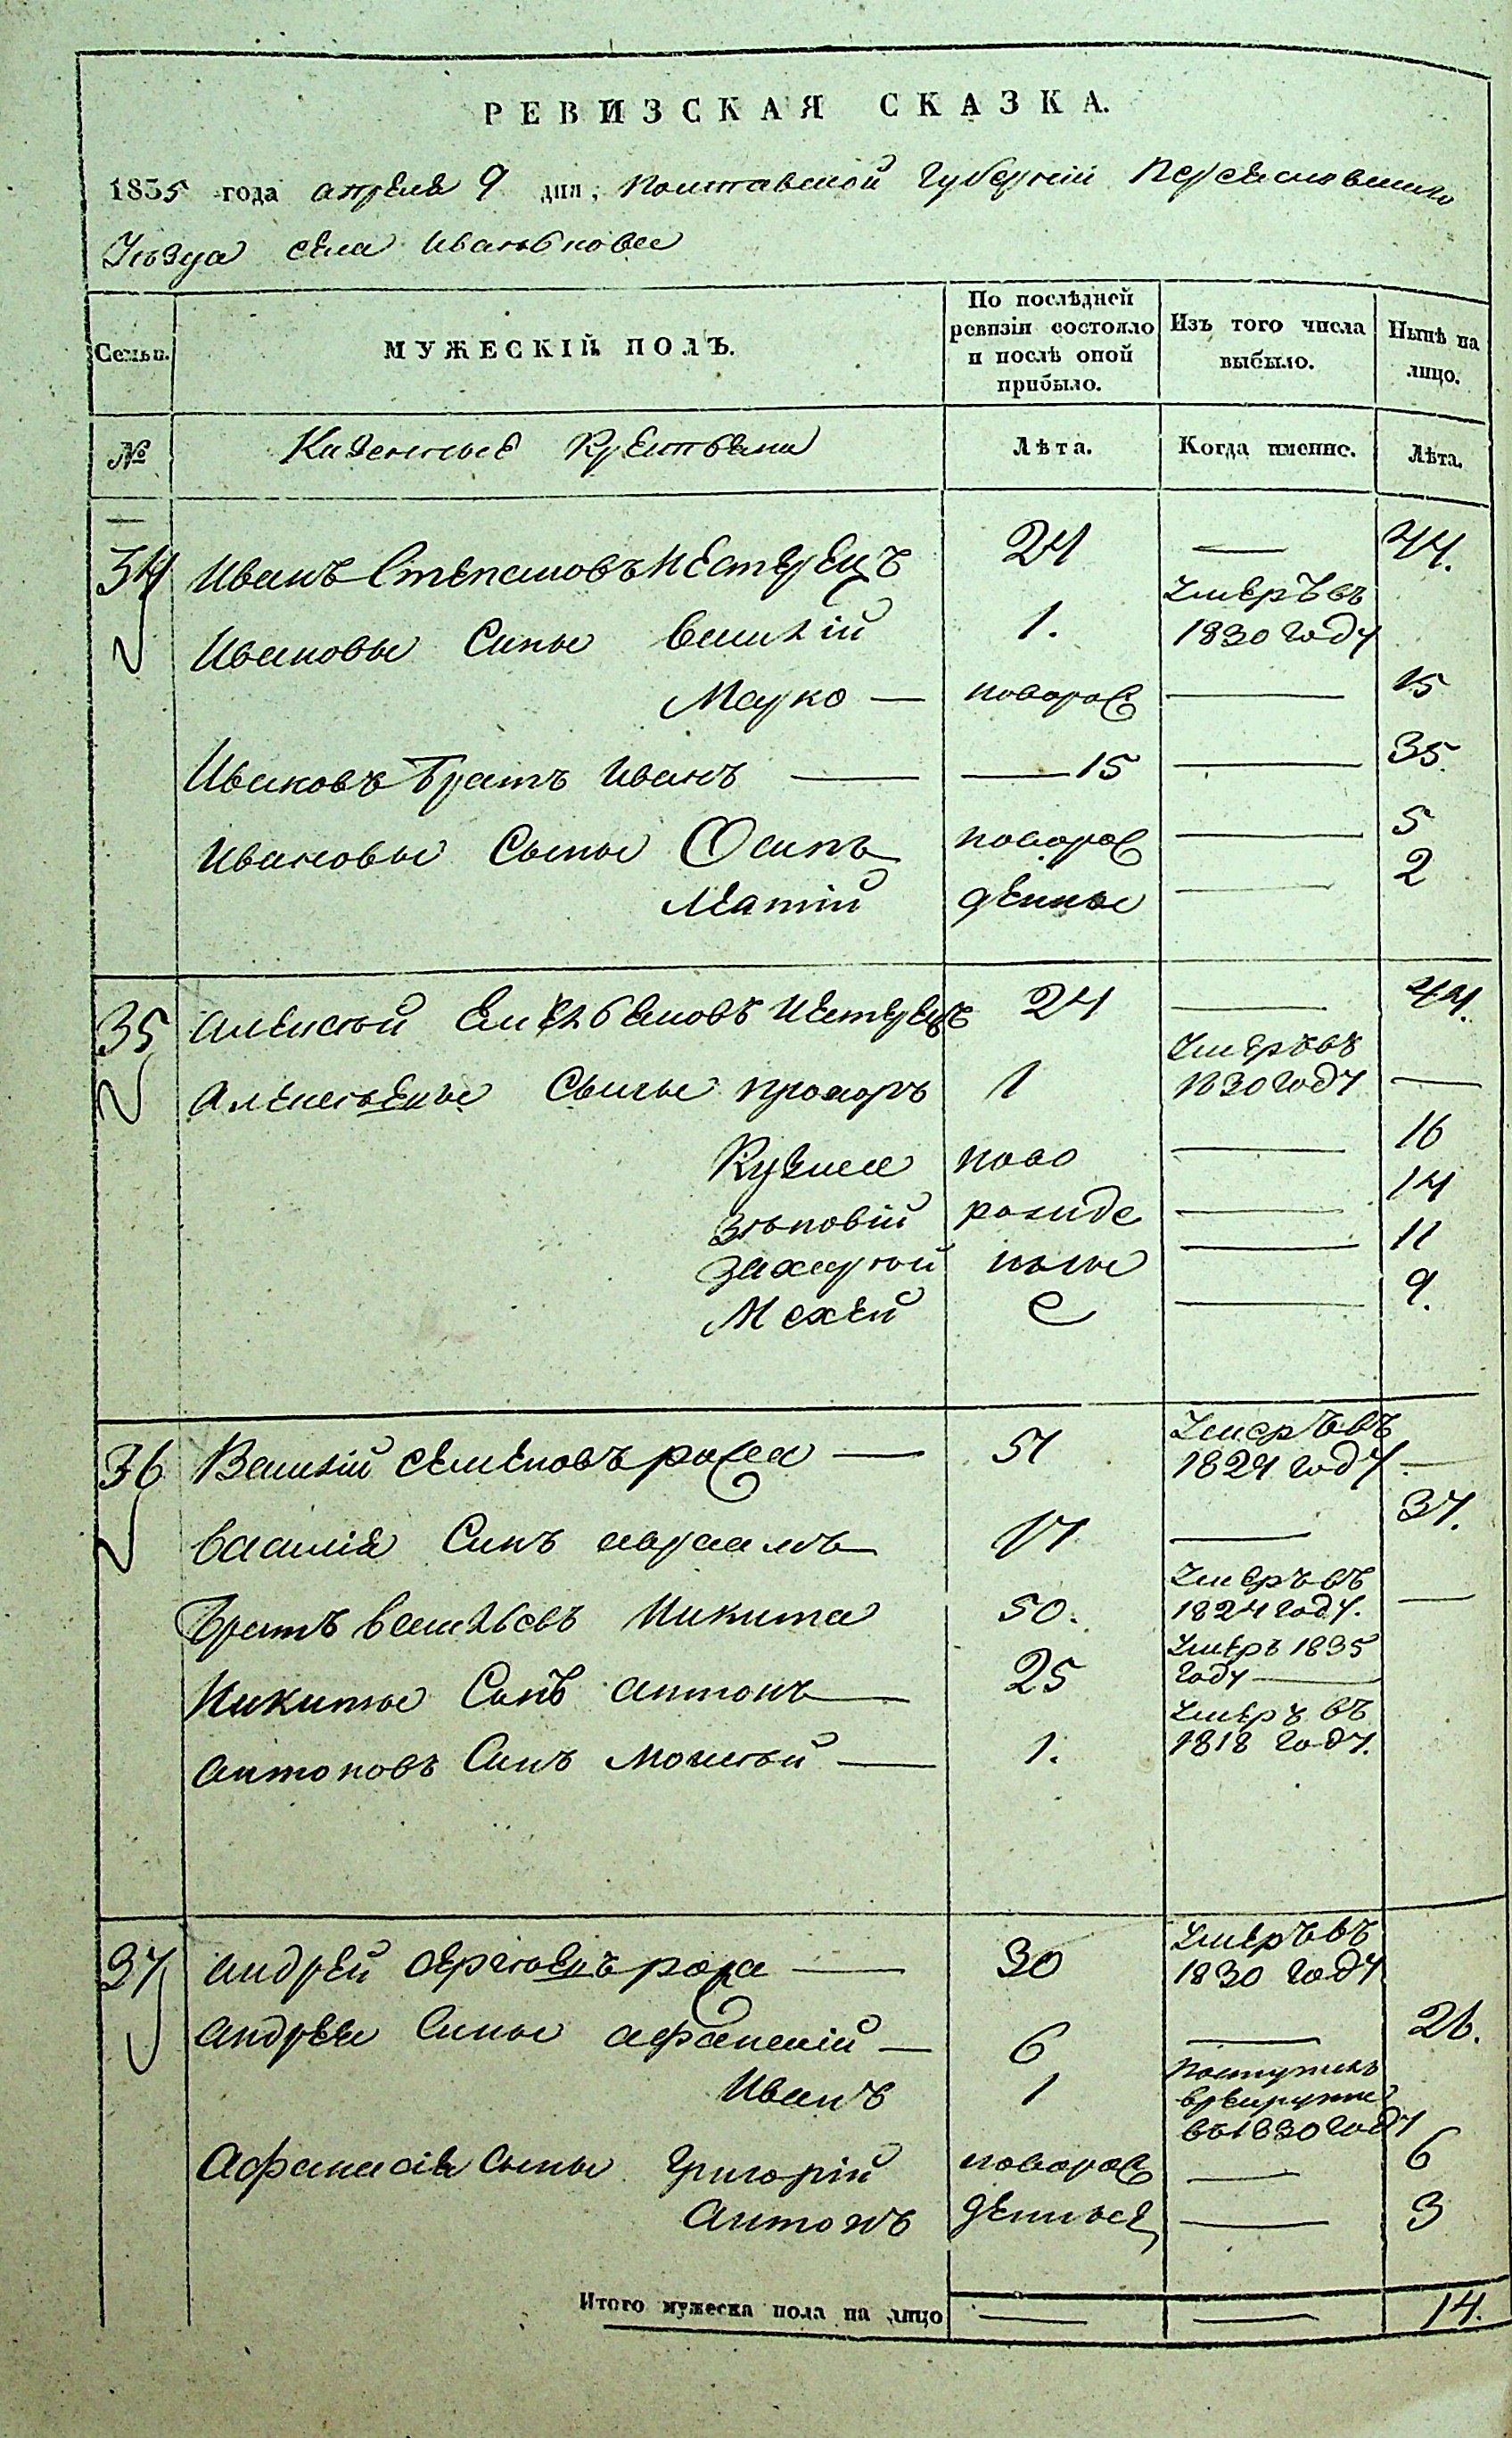 РЕВИЗСКАЯ СКАЗКА.
1835 года апреля 9 дня, Полтавской Губернiи Переясловскаго
Уѣзда села Иванькова
Семьи. МУЖЕСКІЙ ПОЛЪ. По послѣдней ревизіи состояло и послѣ оной прибыло. Изъ того числа выбыло. Нынѣ на лицо.
№ Казенные Крестьяне Лѣта. Когда именно. Лѣта.
34 Иванъ Степановъ Нестерецъ 24 — 44.
Ивановы Сины Василій 1. Умеръ въ 1830 году
Марко — новорож — 15
Ивановъ Братъ Иванъ — 15 — 35.
Ивановы Сыны Осипъ новорож — 5
Матій денные — 2
35 Алексѣй Емельяновъ Нестерецъ 24 — 44.
Алексѣевы Сыны Прохоръ 1 Умеръ въ 1830 году —
Кузма ново — 16
Зѣновій рожде — 14
Захарій нные — 11
Мехей — 9.
36 Василій Семеновъ — 51 Умеръ въ 1824 году —
Василія Синъ Авраамъ 17 — 37.
Братъ Васильевъ Никита 50. Умеръ въ 1824 году. —
Никиты Синъ Антонъ — 25 Умеръ 1835 году —
Антоновъ Синъ Моисѣй — 1. Умеръ въ 1818 году.
37 Андрей Сергѣевъ — 30 Умеръ въ 1830 году
Андрея Сины Афанасій — 6 — 26.
Иванъ 1 Поступилъ в рекруты въ 1830 году
Афанасія Сыны Григорій новорож — 6
Антонъ денные — 3
Итого мужеска пола на лицо — — 14.